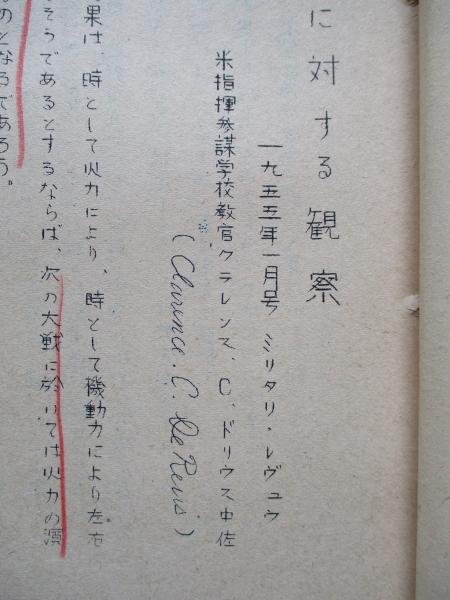 に対する観察
一九五五年一月号 ミリタリ・レヴュウ
米指揮参謀学校教官 クラレンス、C、ドリウス中佐
(Clarence. C. De Reus)
果は、時として火力により、時として機動力により左右
そうであるとするならば、次の大戦に於いては火力の演
のとなるであろう。